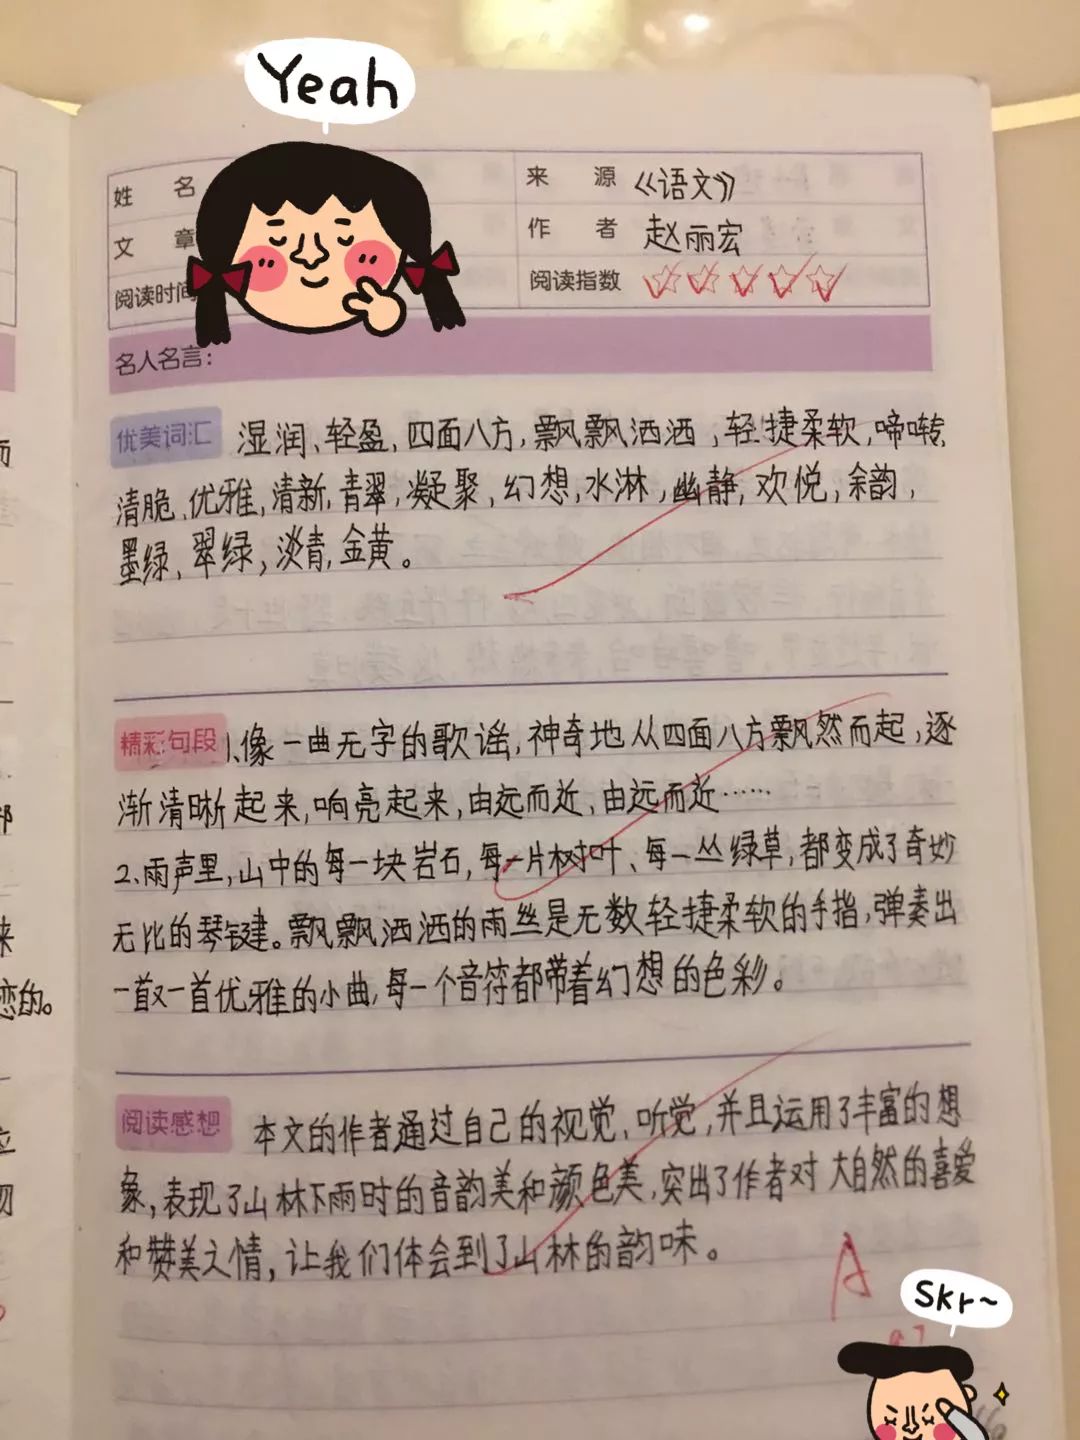 Yeah
姓 名
来 源 《语文》
文 章
作 者 赵丽宏
阅读时间
阅读指数
名人名言:
优美词汇 湿润、轻盈,四面八方,飘飘洒洒,轻捷柔软,啼啭,
清脆、优雅,清新,青翠,凝聚,幻想,水淋,幽静,欢悦,余韵,
墨绿、翠绿,淡青,金黄。
精彩句段 1、像一曲无字的歌谣,神奇地从四面八方飘然而起,逐
渐清晰起来,响亮起来,由远而近,由远而近……
2、雨声里,山中的每一块岩石,每一片树叶、每一丛绿草,都变成了奇妙
无比的琴键。飘飘洒洒的雨丝是无数轻捷柔软的手指,弹奏出
一首又一首优雅的小曲,每一个音符都带着幻想的色彩。
阅读感想 本文的作者通过自己的视觉、听觉,并且运用了丰富的想
象,表现了山林下雨时的音韵美和颜色美,突出了作者对大自然的喜爱
和赞美之情,让我们体会到了山林的韵味。
A
Skr~
而
部
来
恋的。
应